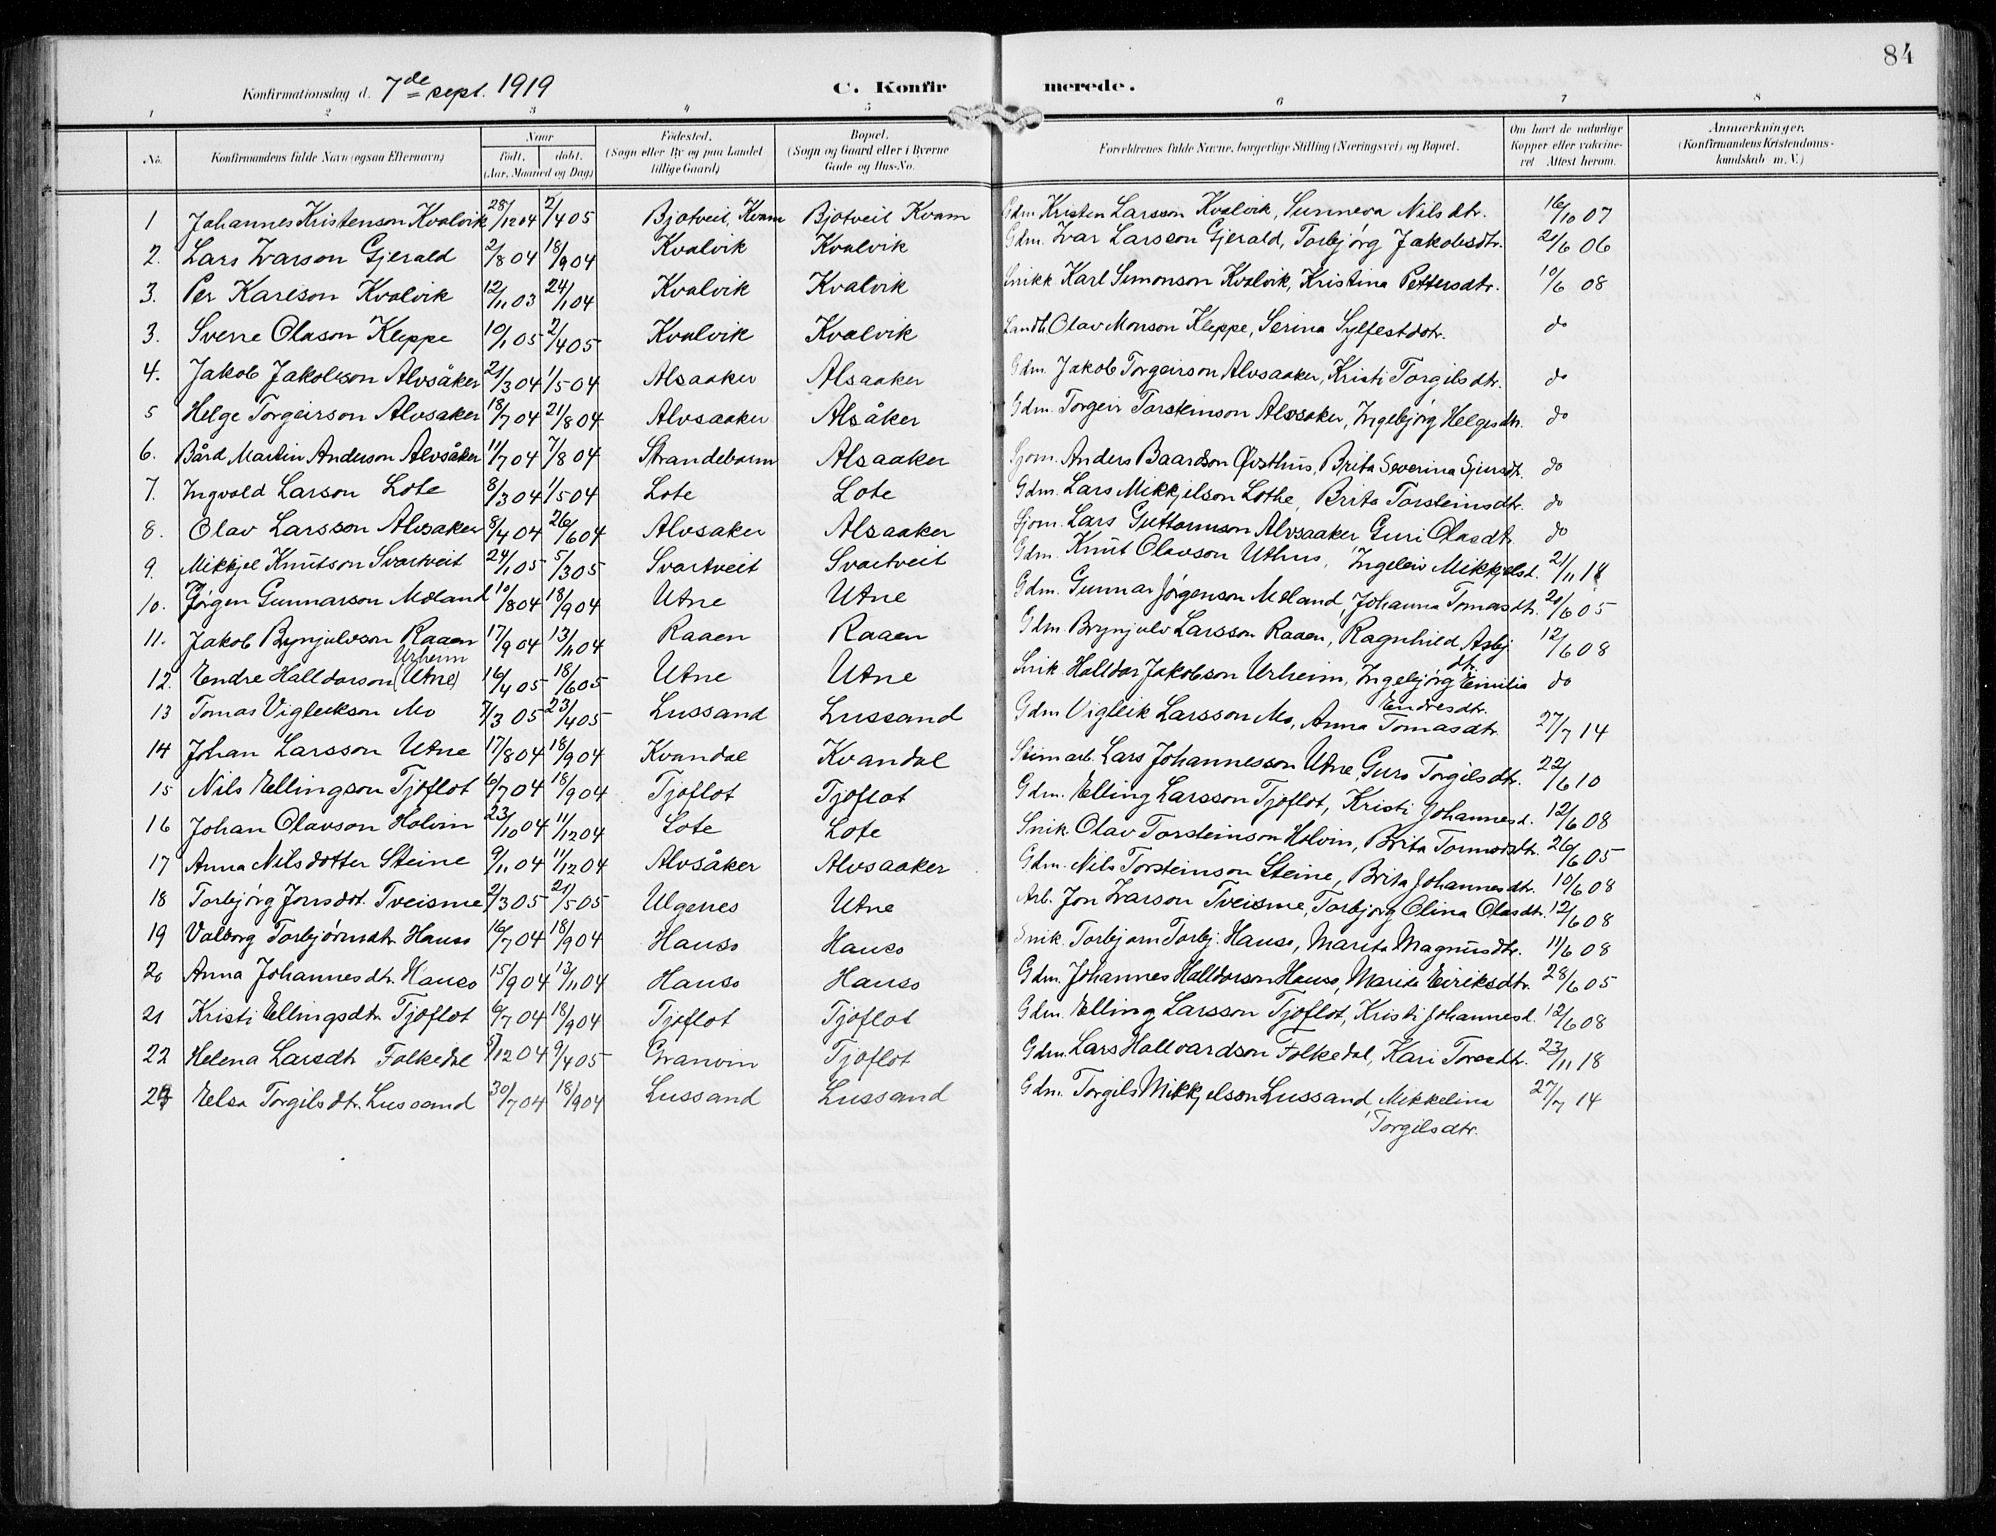 84
Konfirmationsdag d. 7de sept. 1919 C. Konfirmerede.
1 2 3 4 5 6 7 8
No. Konfirmandens fulde Navn (ogsaa Efternavn) Naar født, døbt, (Aar, Maaned og Dag) Fødested, (Sogn eller By og paa Landet tillige Gaard) Bopæl, (Sogn og Gaard eller i Byerne Gade og Hus-No. Forældrenes fulde Navne, borgerlige Stilling (Næringsvei) og Bopæl. Om havt de naturlige Kopper eller vakcineret Attest herom. Anmærkninger, (Konfirmandens Kristendomskundskab m. V.)
1 Johannes Kristenson Kvalvik 28/12 04 2/4 05 Bjotveit, Kvam Bjotveit Kvam Gdm. Kristen Larsson Kvalvik, Sunneva Nilsdtr. 16/10 07
2. Lars Ivarson Gjerald 2/8 04 18/9 04 Kvalvik Kvalvik Gdm. Ivar Larsson Gjerald, Torbjørg Jakobsdtr. 21/6 06
3. Per Karlson Kvalvik 12/11 03 24/1 04 Kvalvik Kvalvik Snikk Karl Simonson Kvalvik, Kristina Pettersdtr. 10/6 08
3. Sverre Olason Kleppe 10/1 05 2/4 05 Kvalvik Kvalvik Landh. Olav Monson Kleppe, Serina Sylfestdotr. do
4. Jakob Jakobson Alvsåker 21/3 04 1/5 04 Alsaaker Alsaaker Gdm. Jakob Torgeirson Alvsaaker, Kristi Torgilsdtr. do
5 Helge Torgeirson Alvsaker 18/7 04 21/8 04 Alvsaaker Alsåker Gdm. Torgeir Torsteinson Alvsaker, Ingebjørg Helgesdtr. do
6. Bård Martin Anderson Alvsåker 11/7 04 7/8 04 Strandebarm Alsaaker Sjom. Anders Baardson Øvsthus, Brita Severina Sjursdt. do
7. Ingvald Larson Lote 8/3 04 1/5 04 Lote Lote Gdm. Lars Mikkjelson Lothe, Brita Torsteinsdtr. do
8. Olav Larsson Alvsaker 8/4 04 26/6 04 Alvsaker Alsaaker Sjom. Lars Guttormson Alvsaaker Guri Olasdtr. do
9. Mikkjel Knutson Svartveit 24/1 05 5/3 05 Svartveit Svartveit Gdm. Knut Olavson Uthus, Ingeleiv Mikkjelsd. 21/11 18
10. Jørgen Gunnarson Mæland 10/8 04 18/9 04 Utne Utne Gdm. Gunnar Jørgenson Mæland, Johanna Tomasdtr. 20/6 05
11. Jakob Brynjulvson Raaen 17/9 04 13/11 04 Raaen Raaen Gdm. Brynjulv Larsson Raaen, Ragnhild Asbj dtr. 12/6 08
12. Endre Halldorson (Utne) Urheim 16/4 05 18/6 05 Utne Utne Snik. Halldor Jakobson Urheim, Ingebjørg Emilia Endresdtr. do
13 Tomas Vigleikson Mo 7/3 05 23/4 05 Lussand Lussand Gdm Vigleik Larsson Mo, Anna Tomasdtr. 27/7 14
14 Johan Larsson Utne 17/8 04 18/9 04 Kvandal Kvandal Steinarb. Lars Johannesson Utne, Guro Torgilsdtr. 22/6 10
15 Nils Ellingson Tjoflot 6/7 04 18/9 04 Tjoflot Tjoflot Gdm. Elling Larsson Tjoflot, Kristi Johannesd. 12/6 08
16 Johan Olavson Holvin 23/10 04 11/12 04 Lote Lote Snik. Olav Torsteinson Holvin, Brita Tormodsdtr. 26/6 05
17 Anna Nilsdotter Steine 9/11 04 11/12 04 Alvsåker Alvsaaker Gdm. Nils Torsteinson Steine, Brita Johannesdtr. 10/6 08
18 Torbjørg Jonsdot. Tveisme 2/3 05 21/5 05 Ulgenes Utne Arb. Jon Ivarson Tveisme, Torbjorg Olina Olasdtr. 12/6 08
19 Valborg Torbjørnsdtr. Hauso 16/7 04 18/9 04 Hauso Hauso Snik. Torbjorn Torbj. Hauso, Marita Magnusdtr. 11/6 08
20 Anna Johannesdtr. Hauso 15/9 04 13/11 04 Hauso Hauso Gdm. Johannes Halldorson Hauso, Marita Eiriksdtr. 28/6 05
21 Kristi Ellingsdtr. Tjoflot 6/7 04 18/9 04 Tjoflot Tjoflot Gdm. Elling Larsson Tjoflot, Kristi Johannesd. 12/6 08
22 Helena Larsdtr Folkedal 5/12 04 9/4 05 Granvin Tjoflot Gdm. Lars Hallvardson Folkedal, Kari Toresdtr. 23/11 18
23 Elsa Torgilsdtr. Lussand 30/7 04 18/9 04 Lussand Lussand Gdm. Torgils Mikkjelson Lussand, Mikkelina Torgilsdtr. 27/7 14